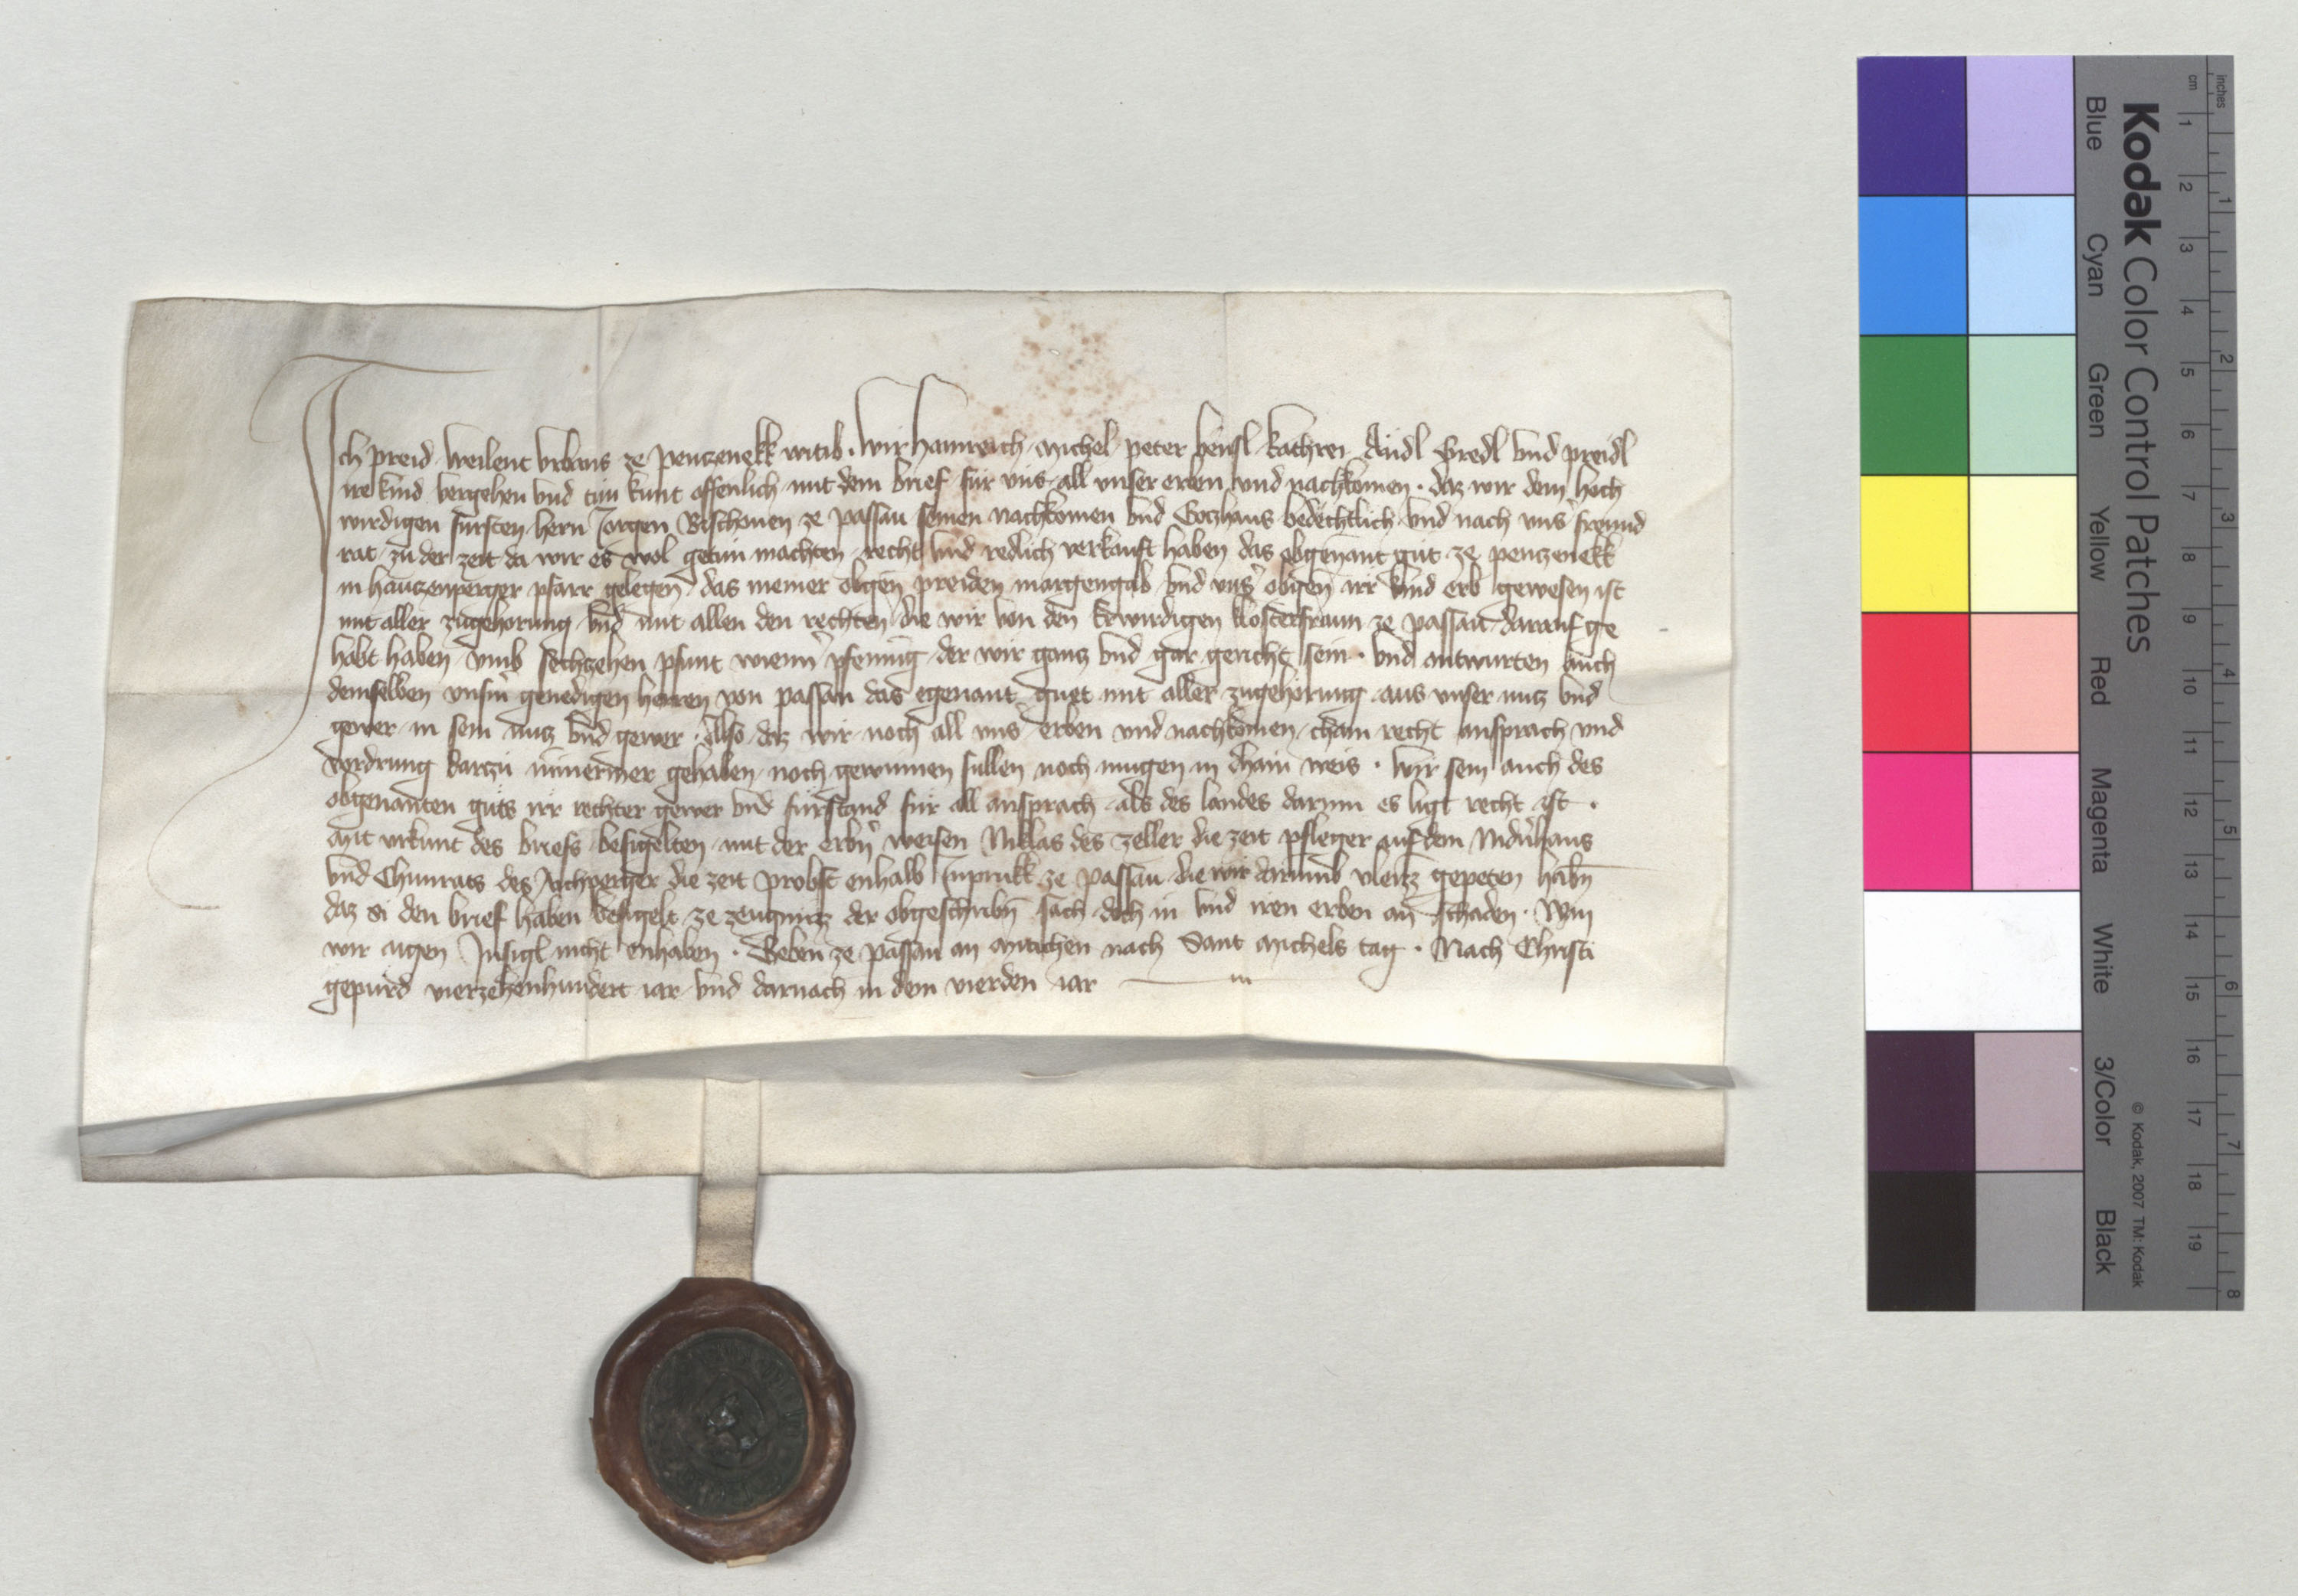 Ich preid weilent vrbans ze penczenekk witib. Wir hainreich michel peter hensl kathrei Ändl Gredl vnd preidl
ire kind vergehen vnd tün kunt offenlich mit dem brief für vns all vnser erben vnd nachkomen. daz wir dem hoch
wirdigen fürsten hern Jorgen Bischouen ze passau seinen nachkomen vnd Goczhaus bedechtlich vnd nach vns' freund
rat zu der zeit da wir es wol getün machten recht vnd redlich verkauft haben das obgenant güt ze penczenekk
in hauczenperger pfarr gelegen das meiner obgen preiden margengab vnd vns' obgen irr kind erb gewesen ist
mit aller zugehorung vnd mit allen den rechten die wir von den Erwirdigen klosterfraun ze passau darauf ge
habt haben vmb sechczehen pfunt wienn' pfenning der wir gancz vnd gar gericht sein. vnd antwurten auch
demselben vnserm genedigen herren von passau das egenant guet mit aller zugehörung aus vnser nucz vnd
gewer in sein nucz vnd gewer. Also daz wir noch all vns' erben vnd nachkomen chain recht ansprach vnd
vordrung darczu nimermer gehaben noch gewinnen sullen noch mugen in dhain weis. Wir sein auch des
obgenanten güts irr rechter gewer vnd fürstand für all ansprach als des landes darinn es ligt recht ist.
Mit vrkunt des briefs besigelten mit der erbn' weisen Niklas des zeller die zeit pfleger auf dem Nidernhaus
vnd Chunrats des Aichperger die zeit probst enhalb Inprukk ze passau die wir darumb vleizz gepeten habn
daz si den brief haben besigelt ze zeugnüzz der obgeschribn sach doch in vnd iren erben an schaden. Wan
wir aigen Insigl nicht enhaben. Geben ze passau an Mitichen nach Sant Michels tag. Nach Christi
gepurd vierzehenhundert iar vnd darnach in dem vierden iar
Kodak Color Control Patches
Blue Cyan Green Yellow Red Magenta White 3/Color Black
© Kodak, 2007 TM: Kodak
inches 1 2 3 4 5 6 7 8
cm 1 2 3 4 5 6 7 8 9 10 11 12 13 14 15 16 17 18 19